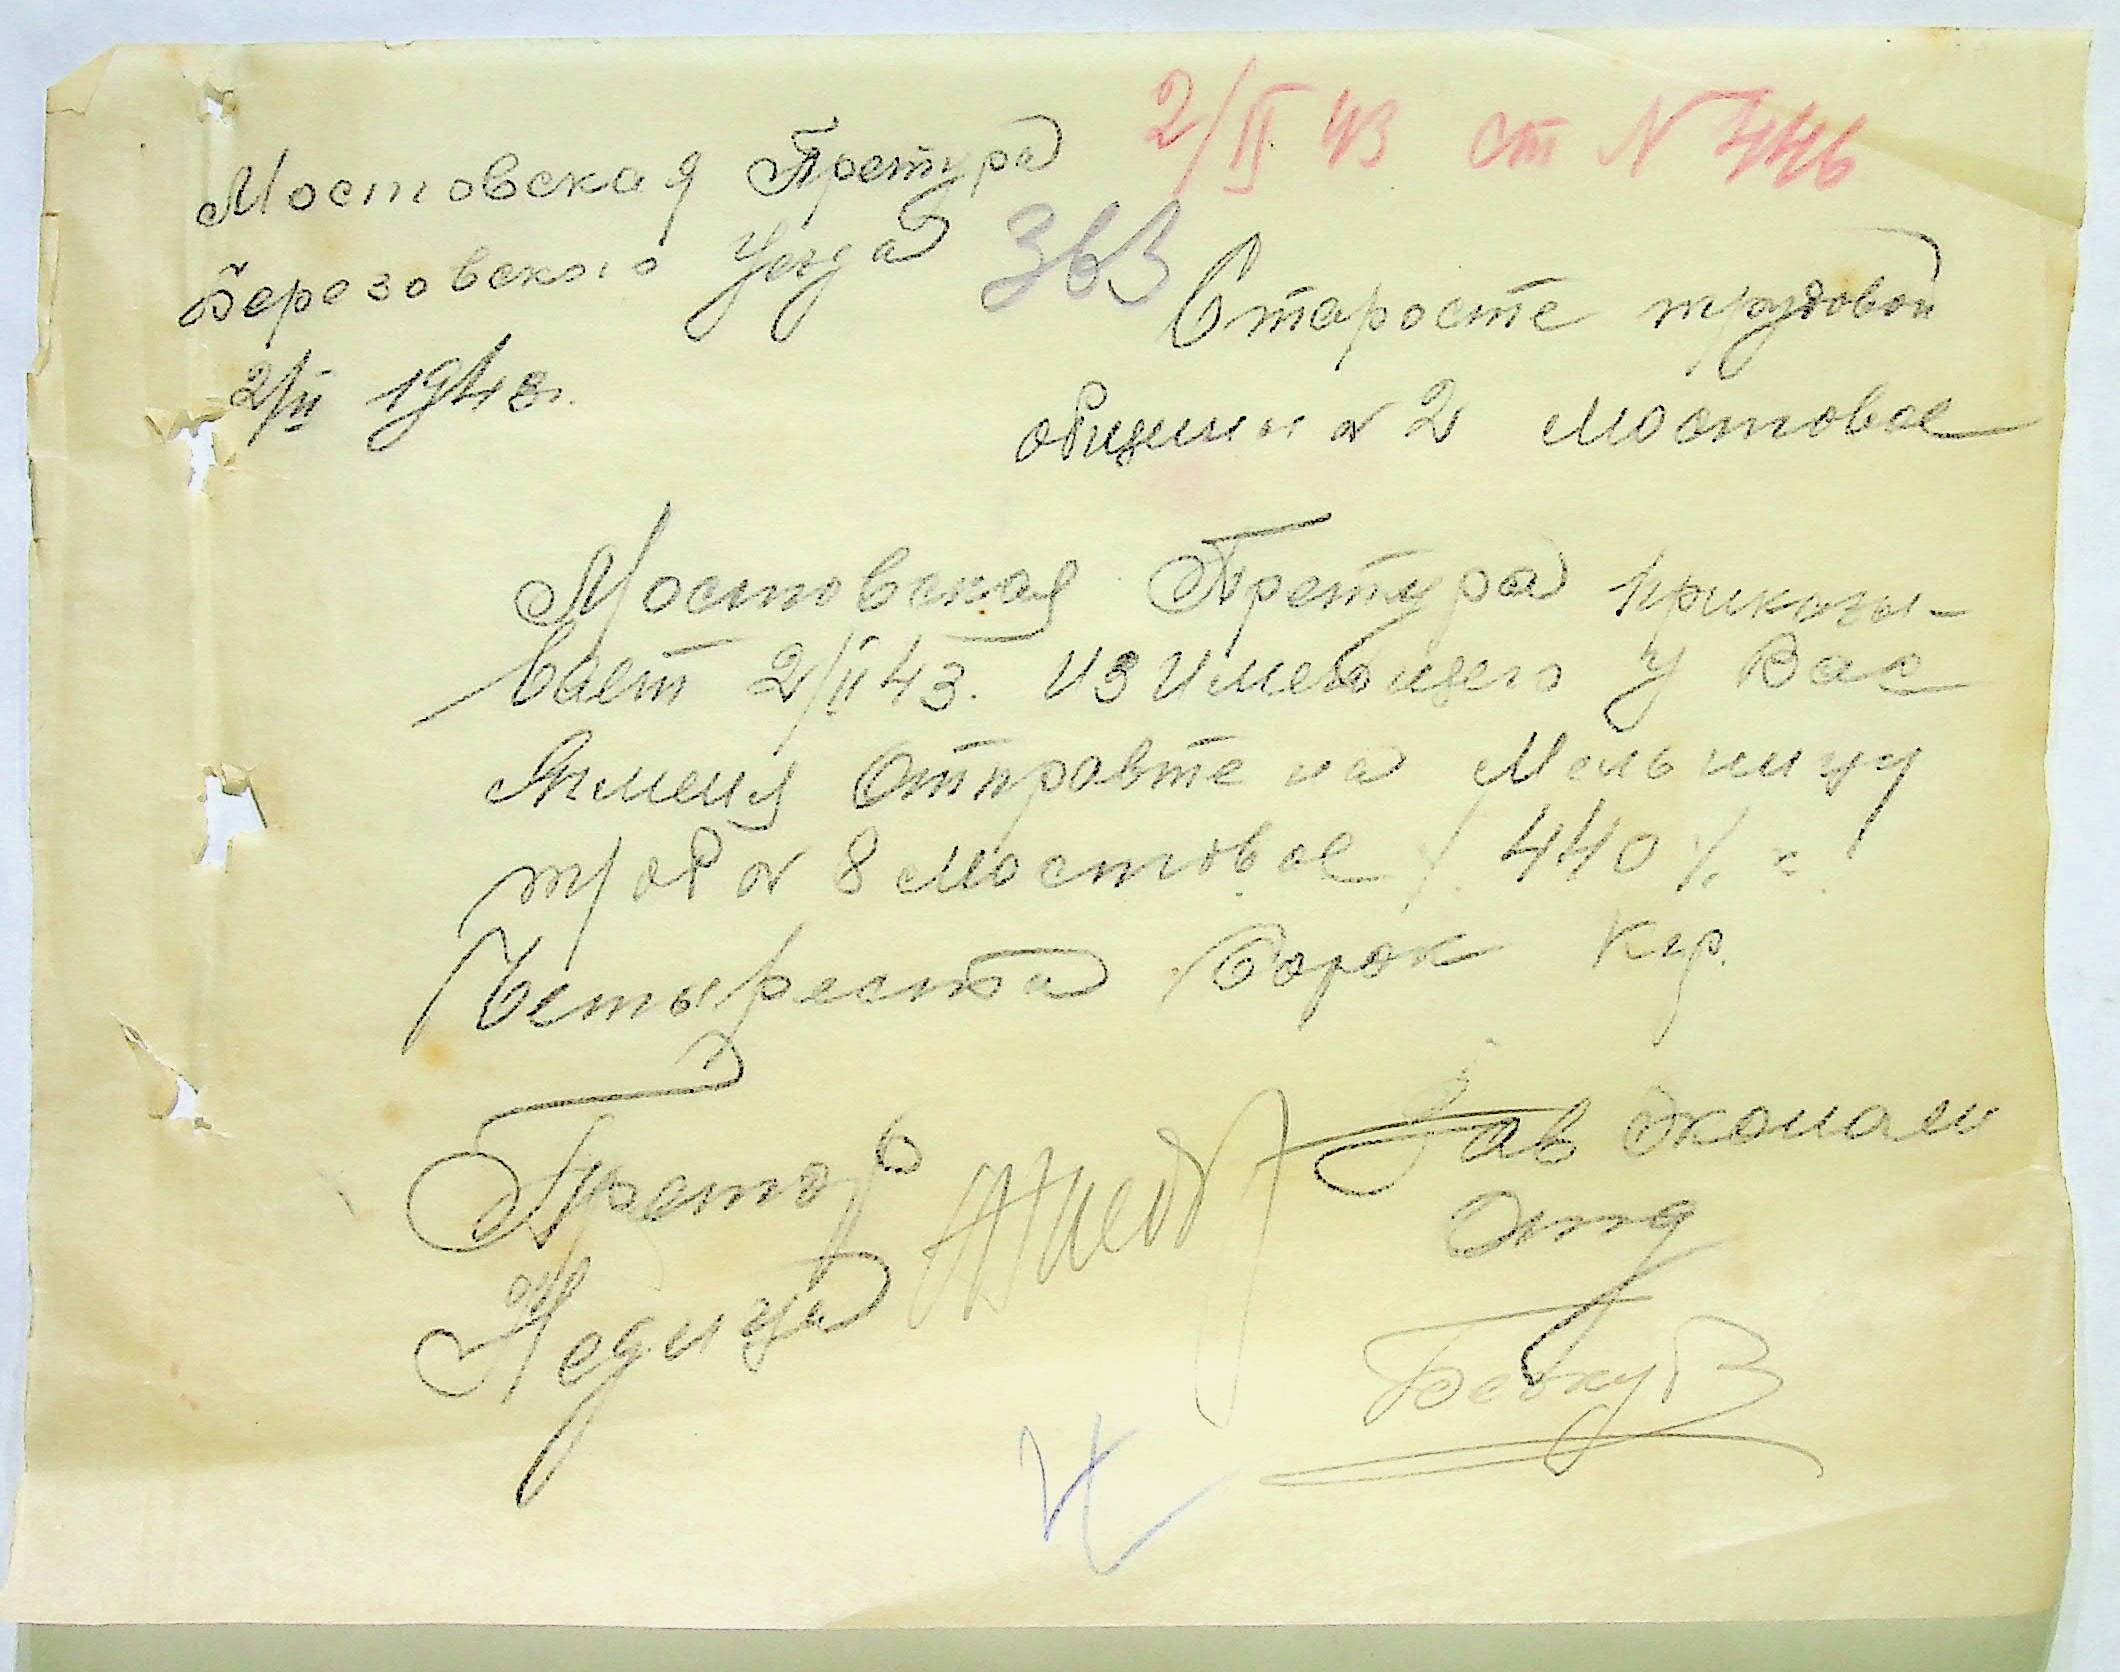 2/II 43 ст N 446
Мостовская Претура
Березовского Уезда
363
2/II 1943 г.
Старосте трудовой
общины N 2 Мостовое
Мостовская Претура приказы-
вает 2/II 43. из имеющего у Вас
Ячменя отправте на Мельницу
тр/об N 8 Мостовое /. 440 /. =
Четыреста Сорок кгр.
Претор
Зав Эконом
Отд